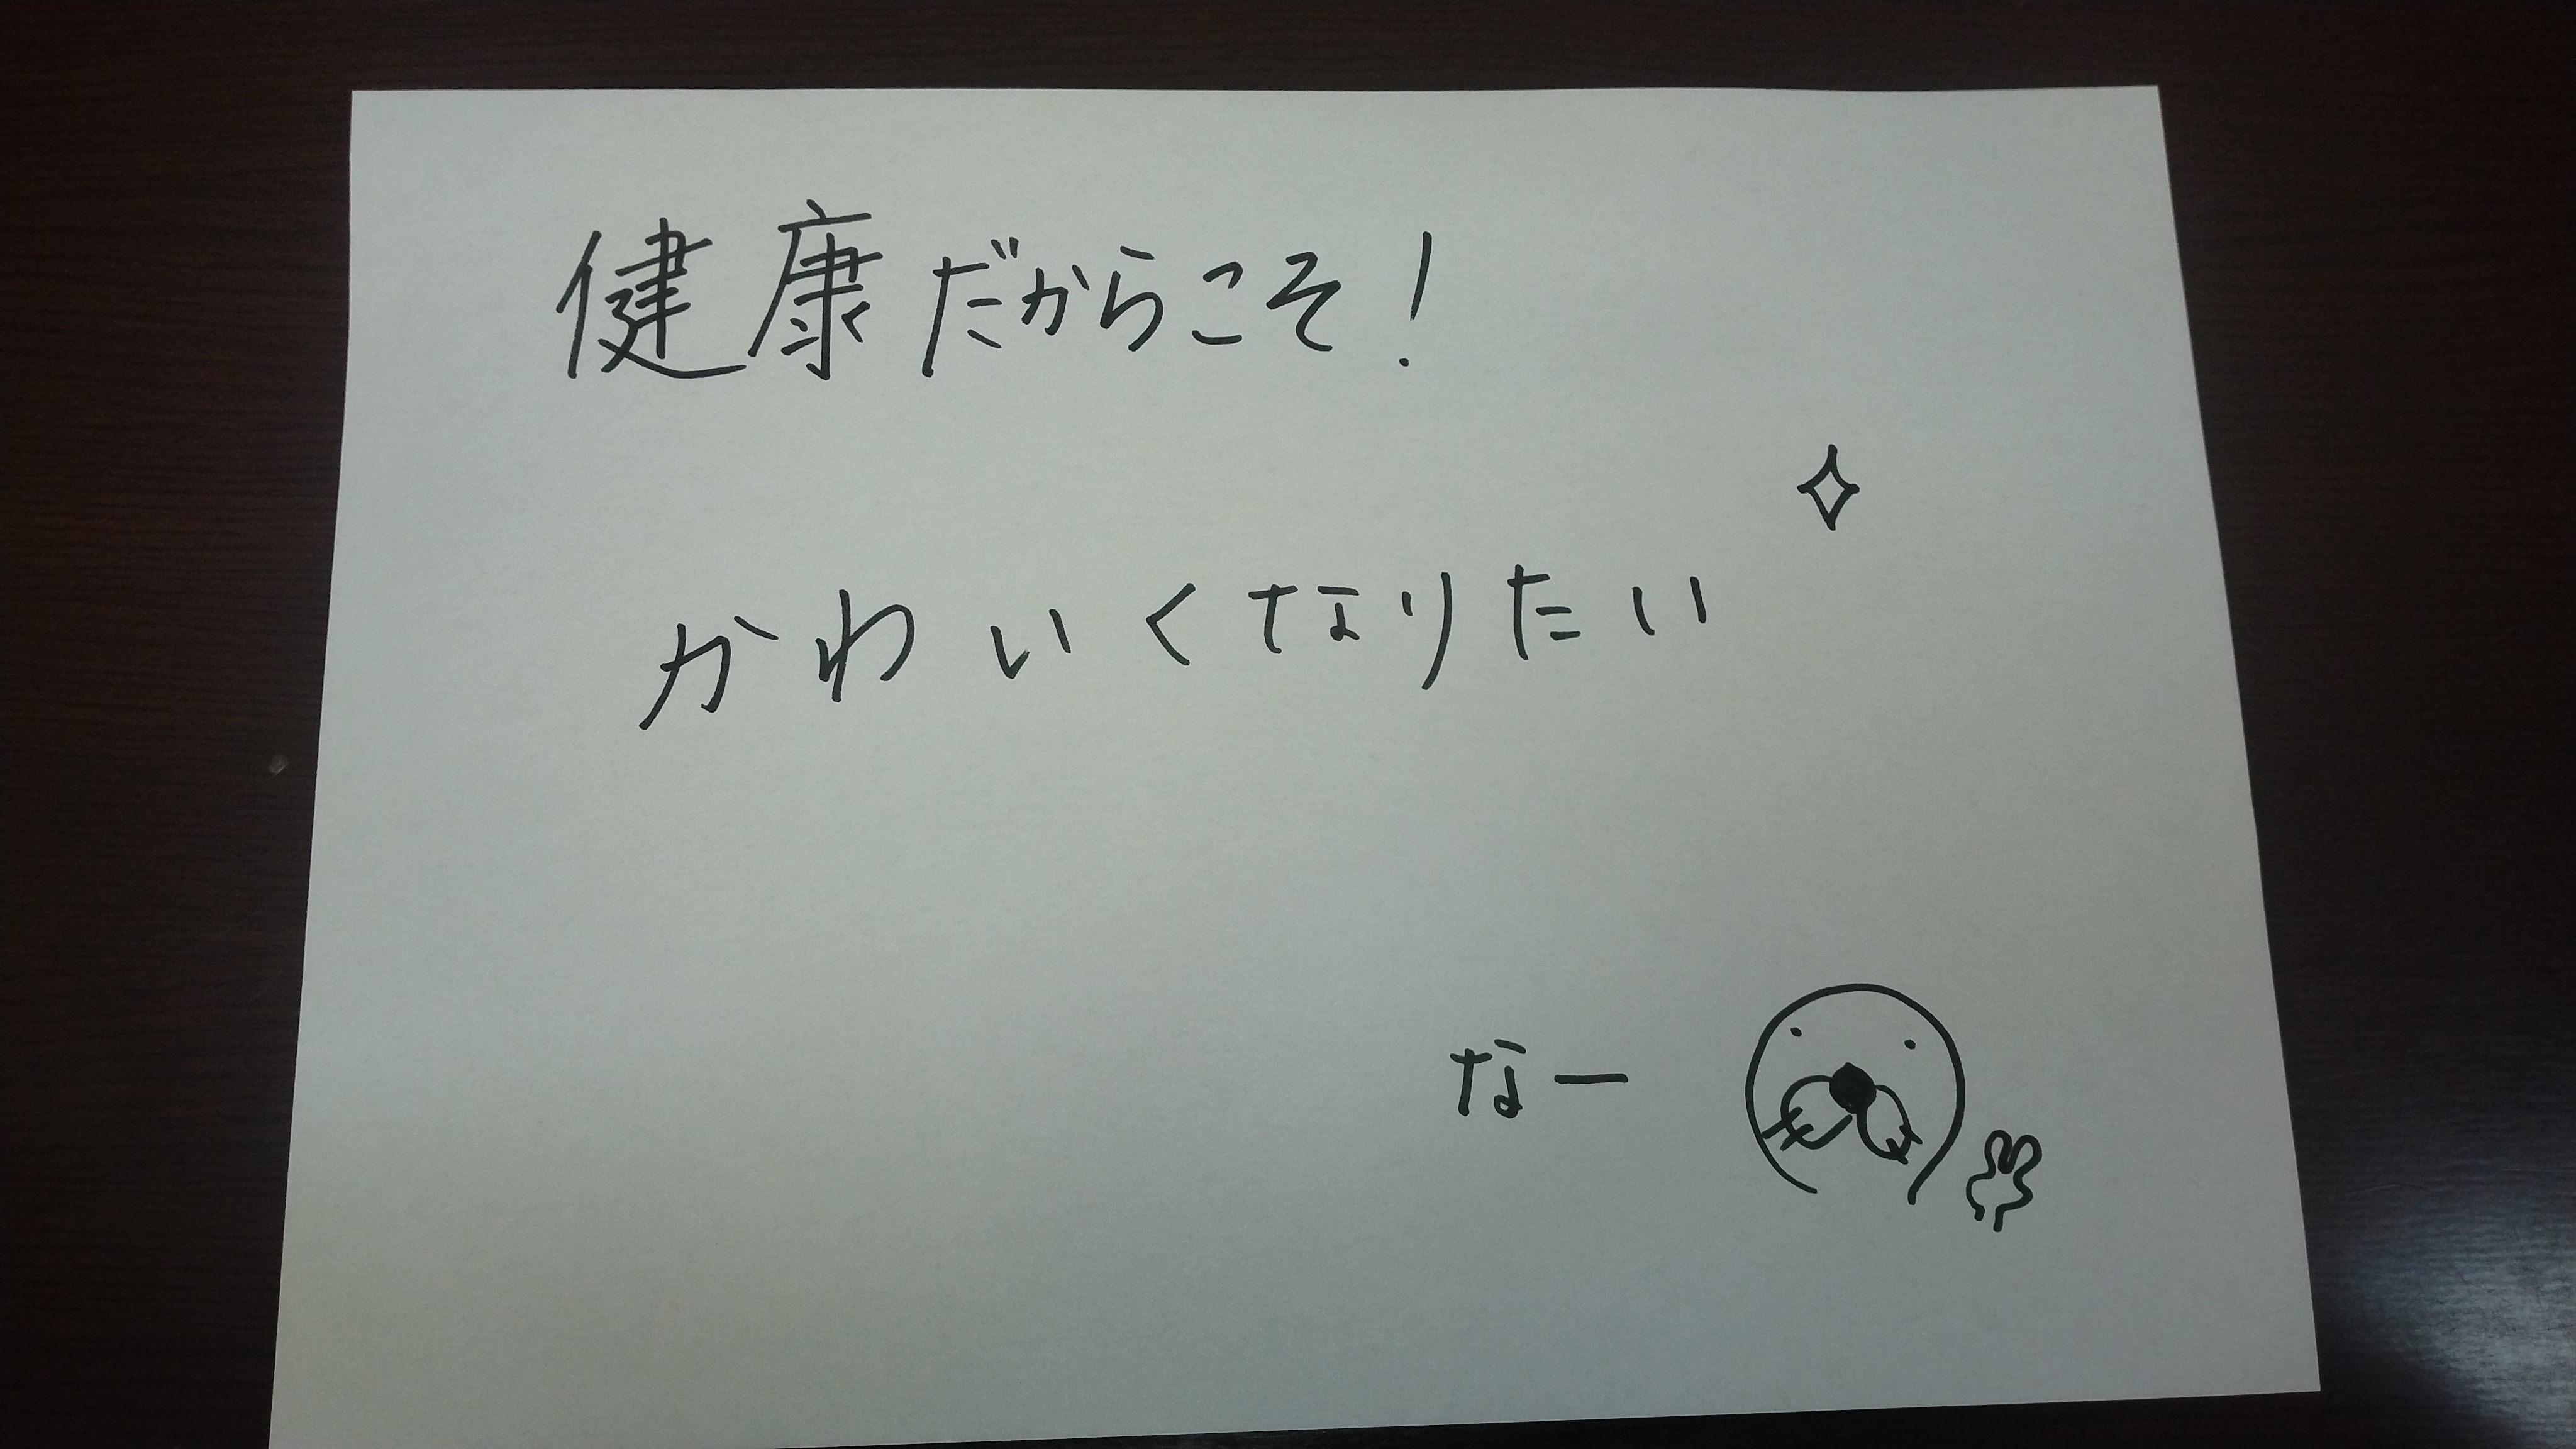 健康だからこそ!
かわいくなりたい
なー